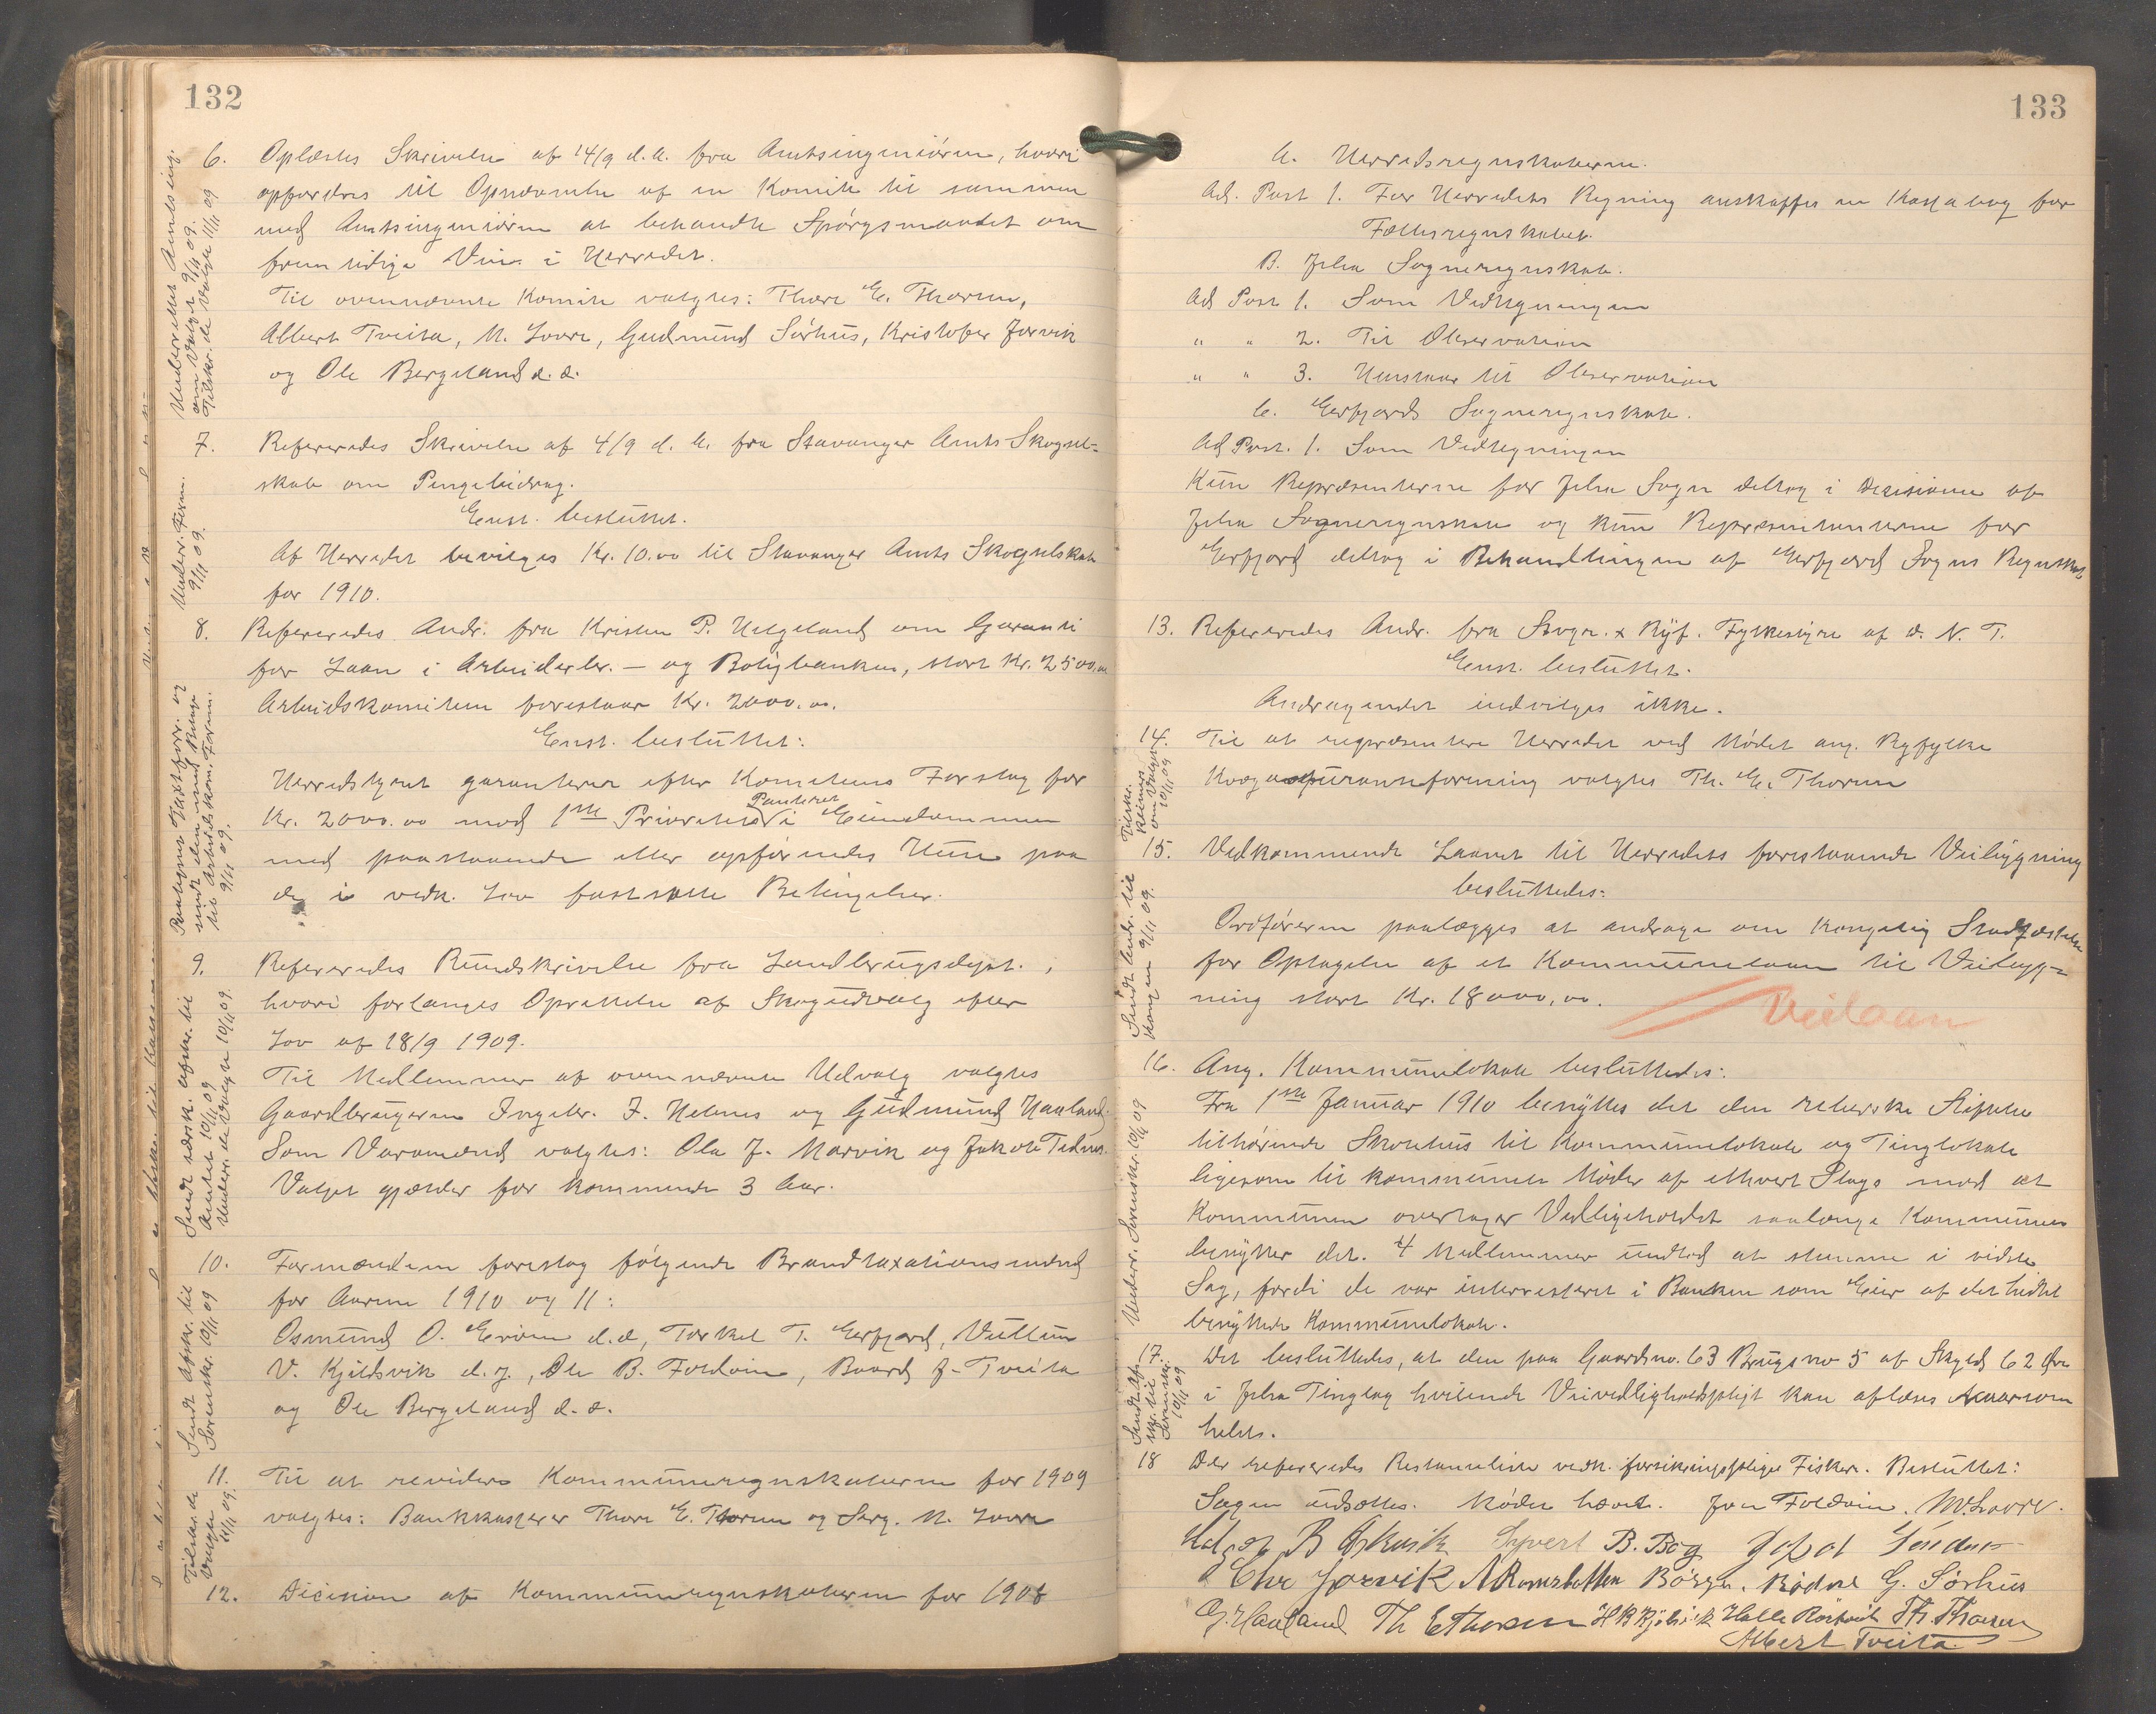 132
6. Oplæstes Skrivelse af 14/9 d. A. fra Amtsingeniøren, hvori
opfordres til Opnævnelse af en Komite til sammen
med Amtsingeniøren at behandle Spørgsmaalet om
fremtidige Veie i Herredet.
Til ovennævnte Komite valgtes: Thore E. Thorsen,
Albert Tveita, M. Lovre, Gudmund Sørhus, Kristofer Jorvik
og Ole Bergeland d. æ.
Underrettet Amtsing.
om Valget 9/11 09.
Tilskr. de Valgte 11/11 09
7. Refereredes Skrivelse af 4/9 d. A. fra Stavanger Amts Skogsel-
skab om Pengebidrag.
Enst. besluttet.
Af Herredet bevilges Kr. 10.00 til Stavanger Amts Skogselskab
for 1910.
Underr. Form.
9/11 09.
8. Refereredes Andr. fra Kristen P. Helgeland om Garanti
for Laan i Arbeiderbr. – og Boligbanken, stort Kr. 2500.00
Arbeidskomiteen foreslaar Kr. 2000.00.
Enst. besluttet:
Herredstyret garanterer efter Komiteens Forslag for
Kr. 2000.00 mod 1ste Prioritets Panteret i Eiendommen
med paastaaende eller opførendes Huse paa
de i vedk. Lov fastsatte Betingelser.
sendt den med Bilage
til Arbeidskom. Form.
9/11 09.
9. Refereredes Rundskrivelse fra Landbrugsdept.,
hvori forlanges Oprettelse af Skogudvalg efter
Lov af 18/9 1909.
Til Medlemmer af ovennævnte Udvalg valgtes
Gaardbrugerne Ingebr. J. Helnes og Gudmund Hauland.
Som Varamænd valgtes: Ola J. Marvik og Jakob Tednes.
Valget gjælder for kommende 3 Aar.
Sendt særsk. afskr. til
Amtet 10/11 09
Underr. de Valgte 10/11 09.
10. Formanden foreslog følgende Brandtaxationsmænd
for Aarene 1910 og 11:
Osmund O. Eröen d.æ, Torkel T. Erfjord,
V. Kjildsvik d.y., Ole B. Foldøin, Baard J. Tveita
og Ole Bergeland d.æ.
Sendt Afskr. til
Sorenskr. 10/11 09
11. Til at revidere Kommuneregnskaberne for 1909
valgtes: Bankkasserer Thore E. Thorsen og Serg. M. Lovre
Tilskr. de
Valgte
11/11 09.
12. Decision af Kommuneregnskaberne for 1908
133
A. Herredsregnskaberne.
Ad. Post 1. For Herredets Regning anskaffes en Kassabog for
Fællesregnskabet.
B. Jelsa Sogneregnskab.
Ad Post 1. Som Vedtegningen
" " 2. Til Observation
" " 3. Henstaar til Observation
C. Erfjords Sogneregnskab.
Ad Post. 1. Som Vedtegningen
Kun Repræsenterne for Jelsa Sogn deltog i Decisionen af
Jelsa Sogneregnskab og kun Repræsentanterne for
Erfjord deltog i Behandlingen af Erfjord Sogns Regnskab
13. Refereredes Andr. fra Stvgr. & Ryf. Fylkestyre af D. N. T.
Enst. besluttet.
Andragendet indvilges ikke.
14. Til at repræsentere Herredet ved Mødet ang. Ryfylke
Kvægassuranseforening valgtes Th. E. Thorsen
Tilskr.
om Valget
10/11 09
15. Vedkommende Laanet til Herredets forestaaende Veibygning
besluttedes:
Ordføreren paalægges at andrage om kongelig Stadfæstelse
for Optagelse af et Kommunelaan til Veibygg-
ning stort Kr. 18000.00.
Veilaan
Sendt Andr. til
Kongen 9/11 09.
16. Ang. Kommunelokale besluttedes:
Fra 1ste Januar 1910 benyttes det den
tilhørende Skolehus til Kommunelokale og Tinglokale
ligesom til kommunale Møder af ethvert Slags mod at
Kommunen overtager Vedligeholdet saalænge Kommunen
benytter det. 4 Medlemmer undlod at stemme i sidste
Sag, fordi de var interresseret i Banken som Eier af det hidtil
benyttede Kommunelokale.
Underr. Sorenskr. 10/11 09
17. Det besluttedes, at den paa Gaardsno. 63 Brugsno 5 af Skyld 62 Øre
i Jelsa Tinglag hvilende Veivedligholdspligt kan afløses naarsom
helst.
Sendt Af-
skr. til
Sorenskr.
10/11 09
18 Der refereredes Restanseliste vedk. forsikringspligtige Fiskere. Besluttet:
Sagen udsættes. Mødet hævet. Jon Foldøin. M. Lovre.
Helge B Askvik Syvert B. Bøg
Chr Jorvik A Ramsbotten G. Sørhus
G. Hauland Th E Thorsen Halle Th. Thorsen
Albert Tveita